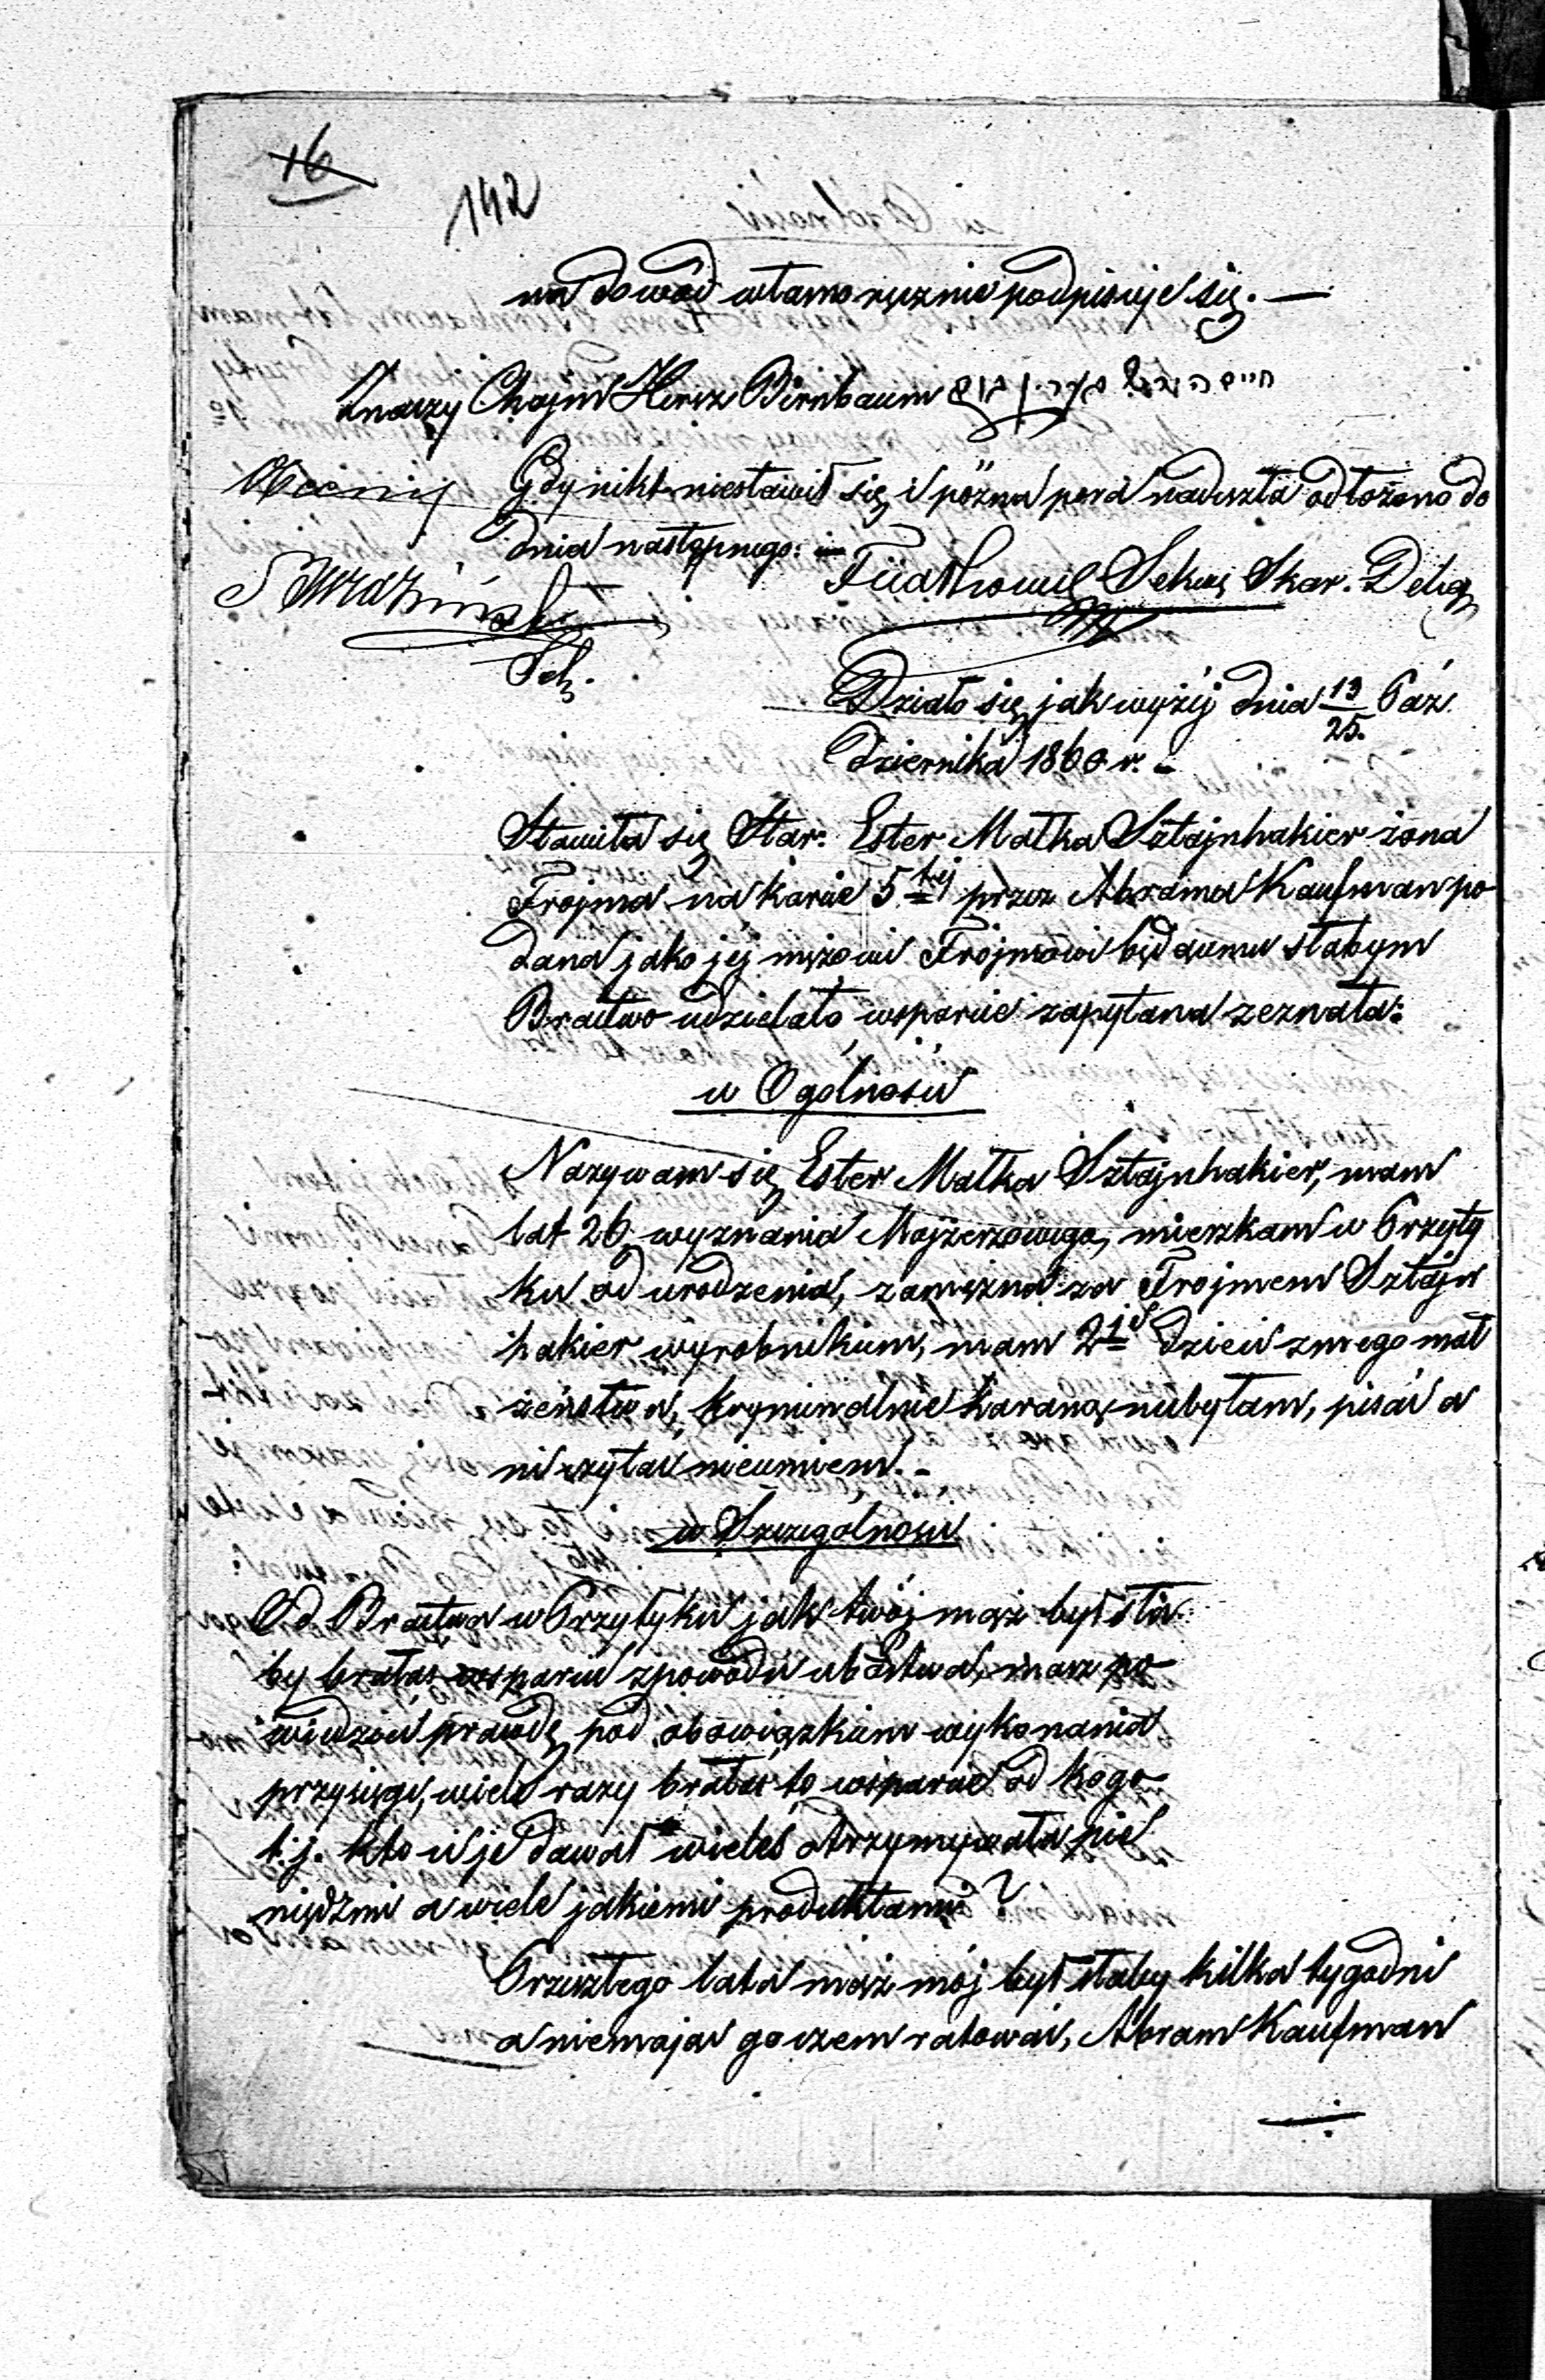 16
142
na dowód własnoręcznie podpisuje się. —
znaczy Chajm Hersz Birnbaum חיים הירש בירנבוים
Obecnij Gdy nikt niestawił się i późna pora nadeszła odłożono do
dnia następnego:
Sekuj Skar. Deleg
Działo się jak wyżéj dnia 13/25. Paź
dziernika 1860 r. -
Stawiła się Star: Ester Małka Sztajnhakier żona
Frojma na karcie 5tej przez Abrama Kaufman po
dana jako jéj mężowi Frojmowi będącemu słabym
Bractwo udzielało wsparcie zapytana zeznała:
w Ogólności
Nazywam się Ester Małka Sztajnhakier, mam
lat 26, wyznania Mojżeszowego, mieszkam w Przyty
ku od urodzenia, zamężna za Frojmem Sztajn
hakier wyrobnikiem, mam 2je dzieci z mego mał
żeństwa, kryminalnie karaną niebyłam, pisać a
ni czytać nieumiem. -
w Szczególności
Od Bractwa w Przytyku jak twój mąż był sła
by brałaś wsparcie z powodu ubóstwa, masz po
wiedzieć prawdę pod obowiązkiem wykonania
przysięgi, wiele razy brałaś to wsparcie od kogo
t.j. kto ci je dawał wieleś otrzymywała pie
niędzmi a wiele jakiemi produktami?
Przeszłego lata mąż mój był słaby kilka tygodni
a niemając go czem ratować, Abram Kaufman